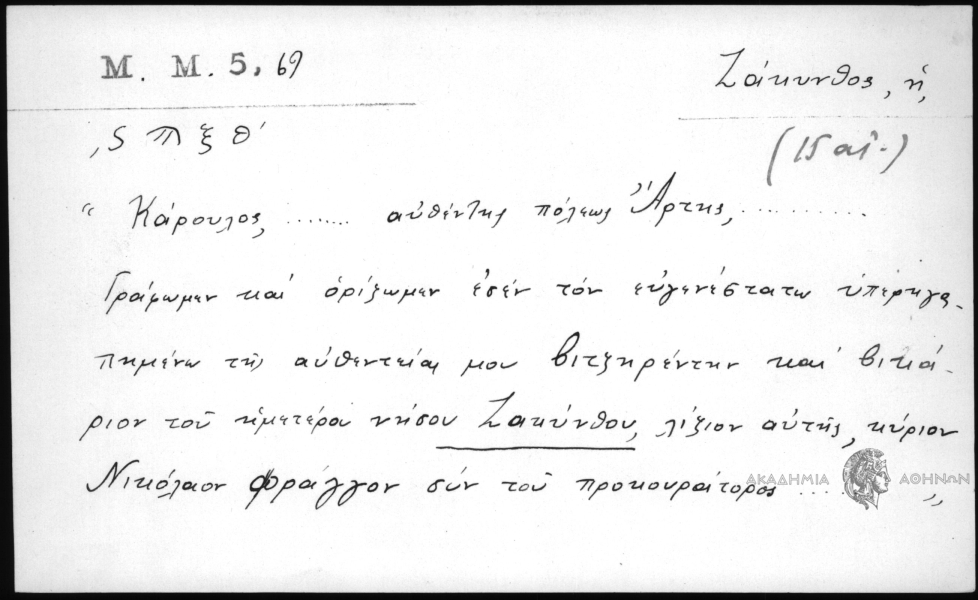 M. M. 5, 69
Ζάκυνθος, ἡ,
͵ϛ Π ξ θ'
(15 αἰ.)
“ Κάρουλος, ........ αὐθέντης πόλεως Ἄρτης, ............
Γράφωμεν καί ὁρίζωμεν ἐσέν τόν εὐγενέστατω ὑπερηγα-
πημένω τῆς αὐθεντείας μου βιτζηρέντην καί βικά-
ριον τοῦ ἡμετέρα νήσου Ζακύνθου, λίζιον αὐτῆς, κύριον
Νικόλαον Φράγγον σύν τοῦ προκουράτορος ... „
ΑΚΑΔΗΜΙΑ ΑΘΗΝΩΝ